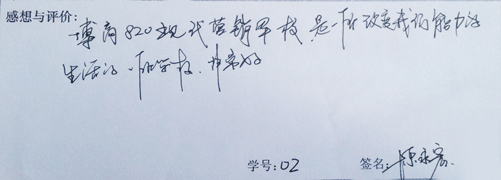 感想与评价:
博商820现代营销军校是一所改变我们能力的
生活的一所学校,非常好
学号:02 签名: